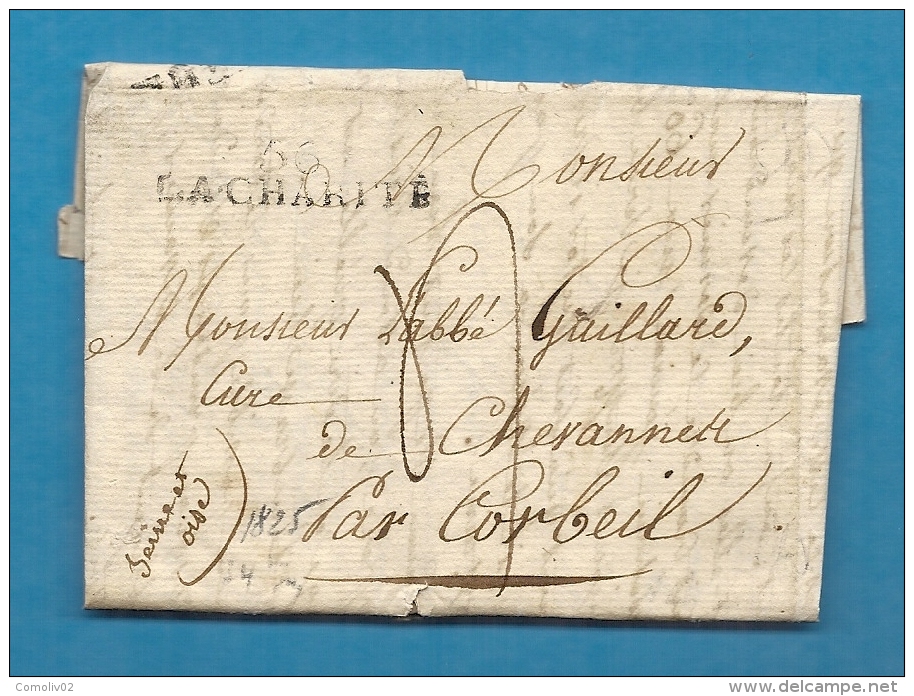 56
LA CHARITÉ
Monsieur
Monsieur L'abbé Gaillard,
Curé
de Chevannes
Par Corbeil
Seine et
oise
1825
Comoliv02
www.delcampe.net